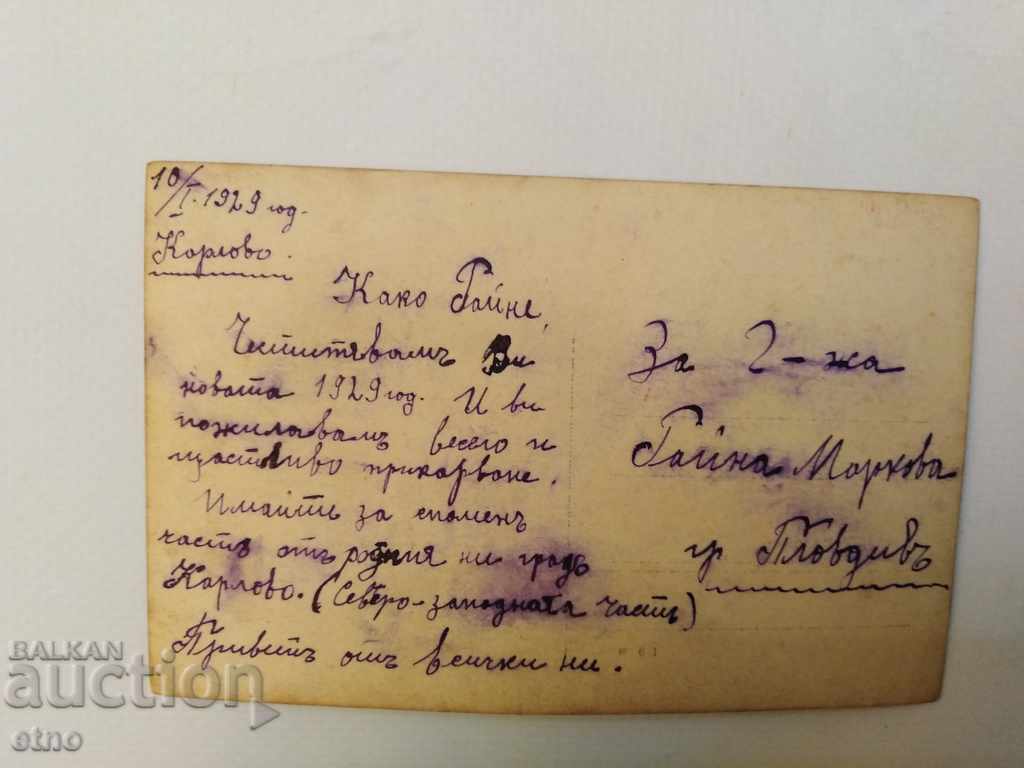 10/I. 1929 год.
Карлово.
Како Гайне,
Честитявамъ Ви
новата 1929 год. И ви
пожилавамъ весело и
щастливо прикарване.
Имайти за споменъ
часть отъ родния ни градъ
Карлово. (Северо-западната часть)
Приветъ отъ всички ни.
За Г-жа
Гайна Маркова
гр Пловдивъ
BALKAN
auction
etno